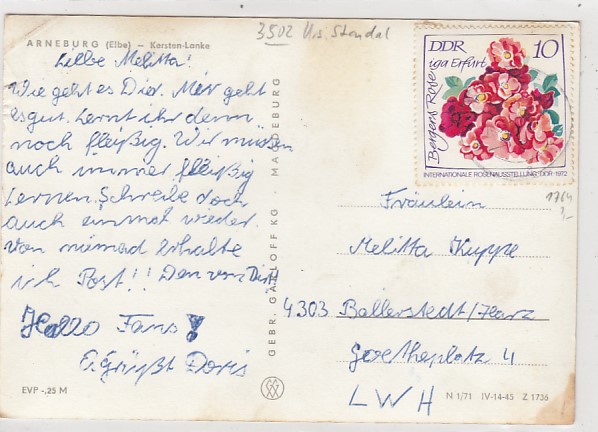 3502 Krs. Stendal
ARNEBURG (Elbe) – Karsten-Lanke
Liebe Melitta!
Wie geht es Dir. Mir geht
es gut. Lernt ihr denn
noch fleißig. Wir müssen
auch immer fleißig
Lernen. Schreibe doch
auch einmal wieder.
Von niemad Erhalte
ich Post!! Den von Dir
Hallo Fans!
E. Grüßt Doris
EVP -,25 M
GEBR. GARLOFF KG · MAGDEBURG
DDR 10
iga Erfurt
Bergers Rose
INTERNATIONALE ROSENAUSSTELLUNG · DDR · 1972
1764
Fräulein
Melitta Kuppe
4303 Ballerstedt/Harz
Goetheplatz 4
LWH
N 1/71 IV-14-45 Z 1736